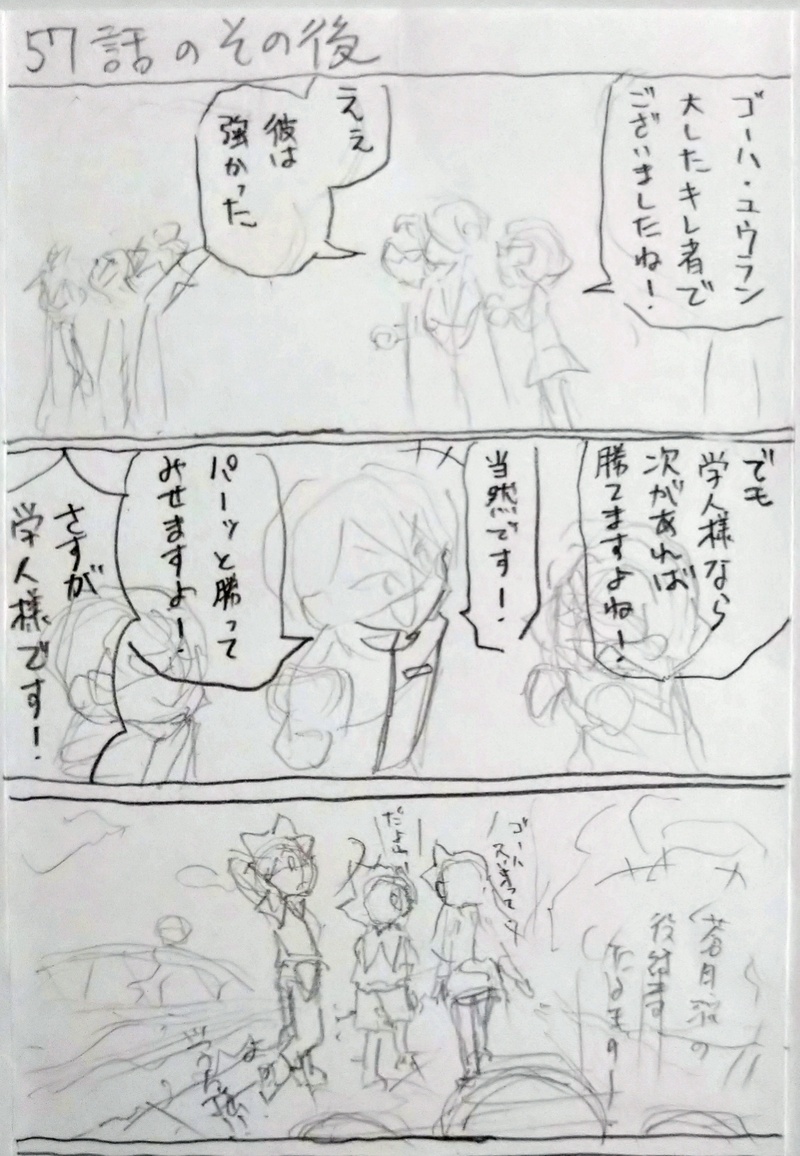 57話のその後
ゴーハ・ユウラン
大したキレ者で
ございましたね!
ええ
彼は
強かった
でも
学人様なら
次があれば
勝てますよね!
当然です!
パーッと勝って
みせますよ!
さすが
学人様です!
ゴーハ
だよ
蒼月流の
役付きます
たるもの